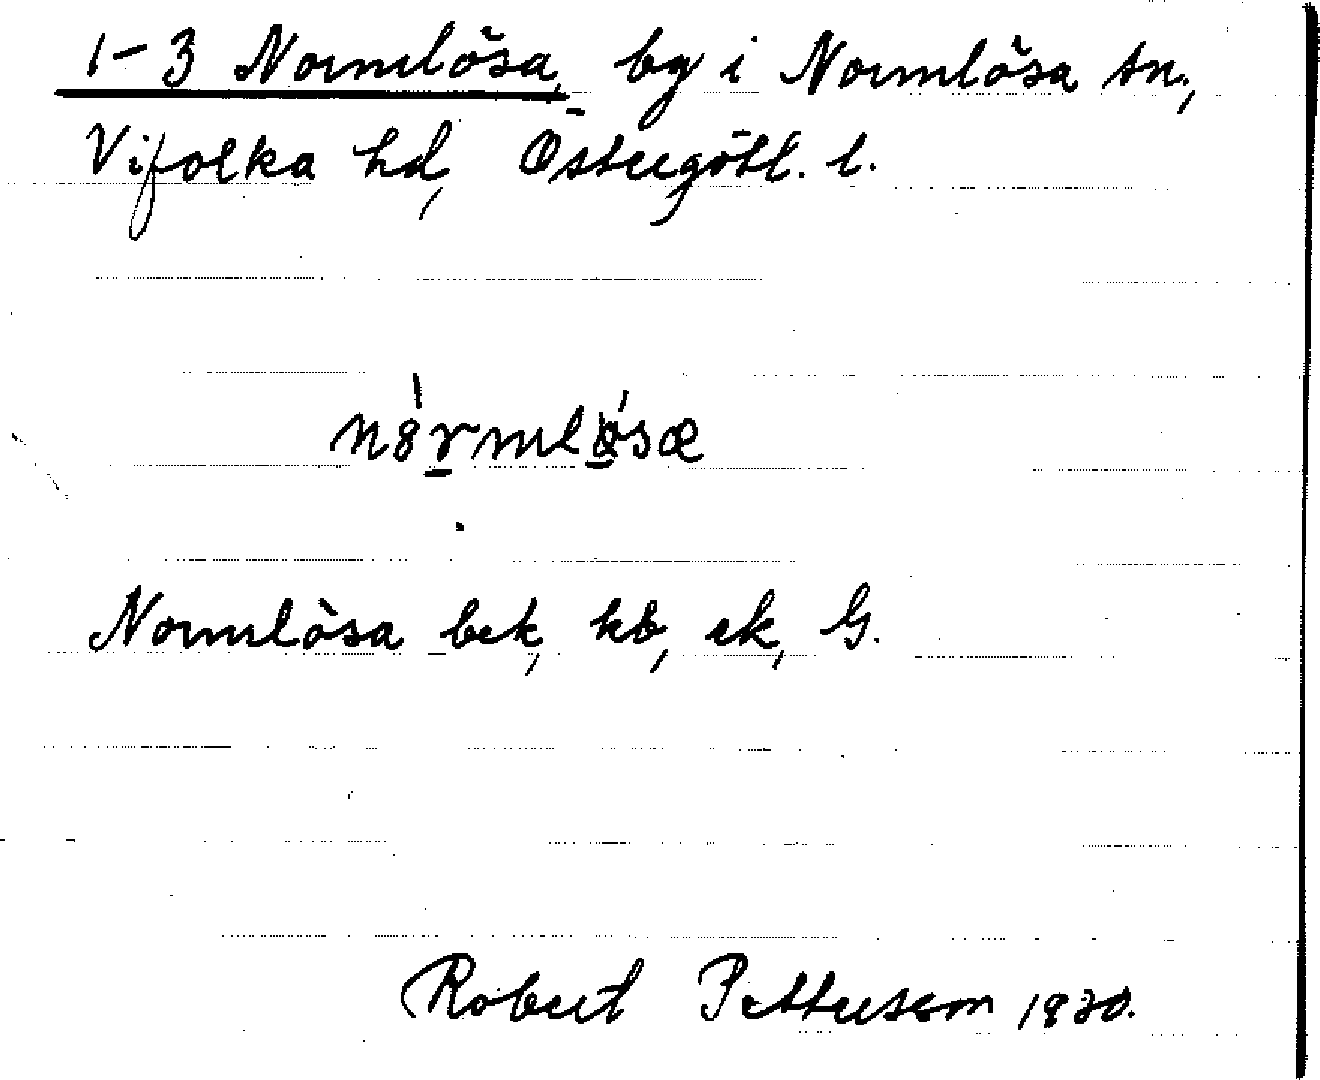 1-3 Normlösa, by i Normlösa sn,
Vifolka hd, Östergötl. l.
Normlösa bek, kb, ek, G.
Robert Pettersson 1930.